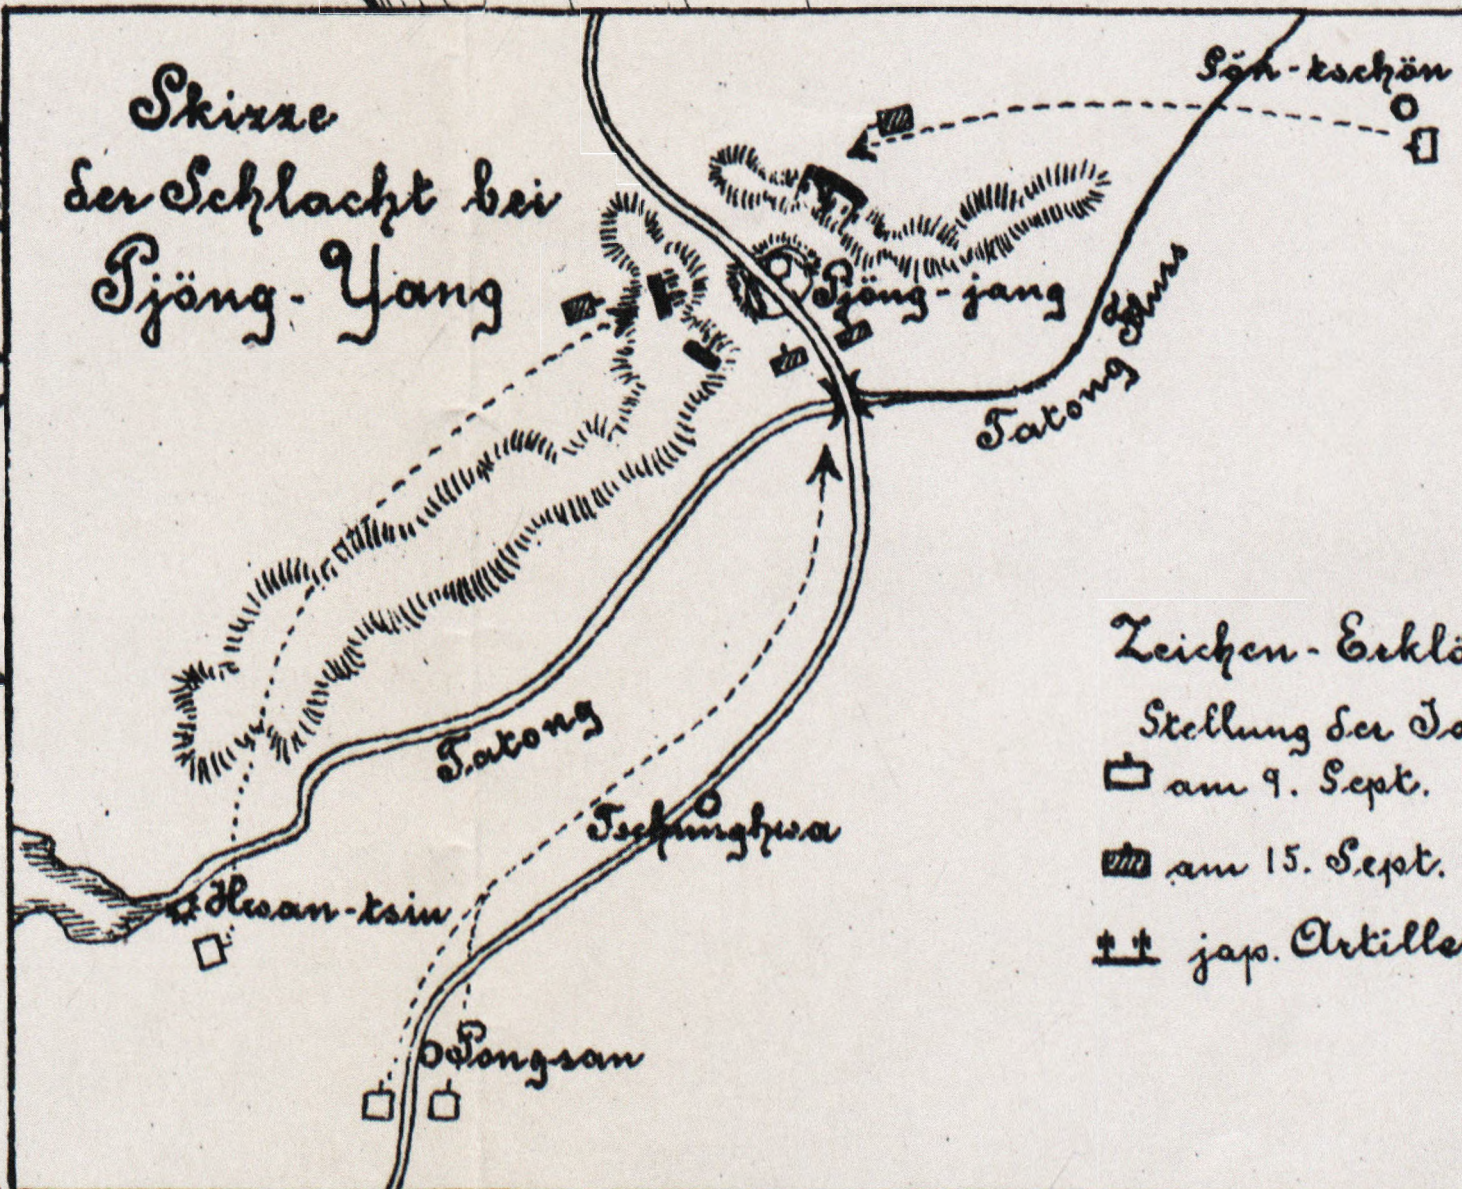 Skizze
der Schlacht bei
Pjöng-Yang
Sön-tschön
Pjöng-jang
Tatong Fluss
Tatong
Tschunghwa
Hwan-tsin
Pongsan
Zeichen-Erklä
Stellung der Ja
am 9. Sept.
am 15. Sept.
jap. Artille